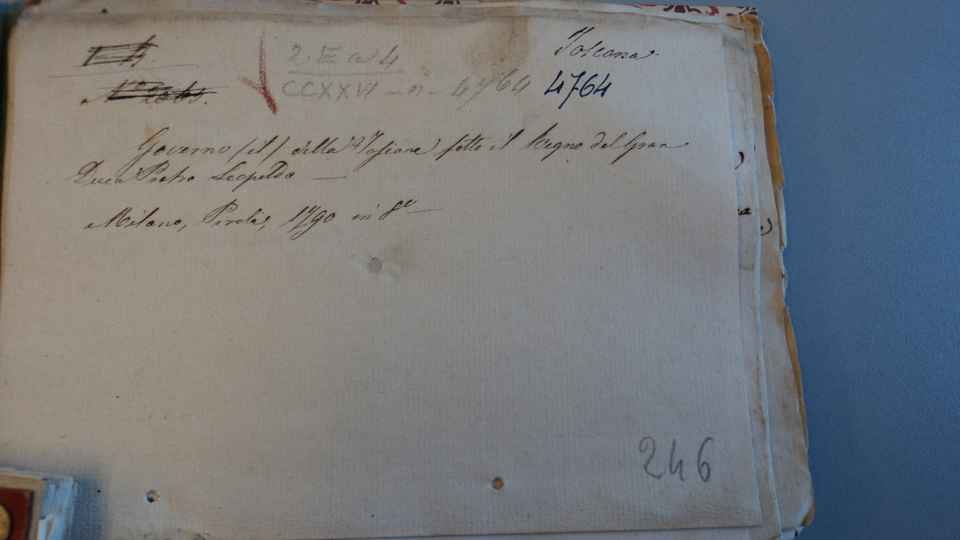 Toscana
2. III a 4
CCXXVI - n - 4764 4764
Governo (il) della Toscana sotto il Regno del Gran
Duca Pietro Leopoldo —
Milano, Pirola, 1790 in 8º —
246